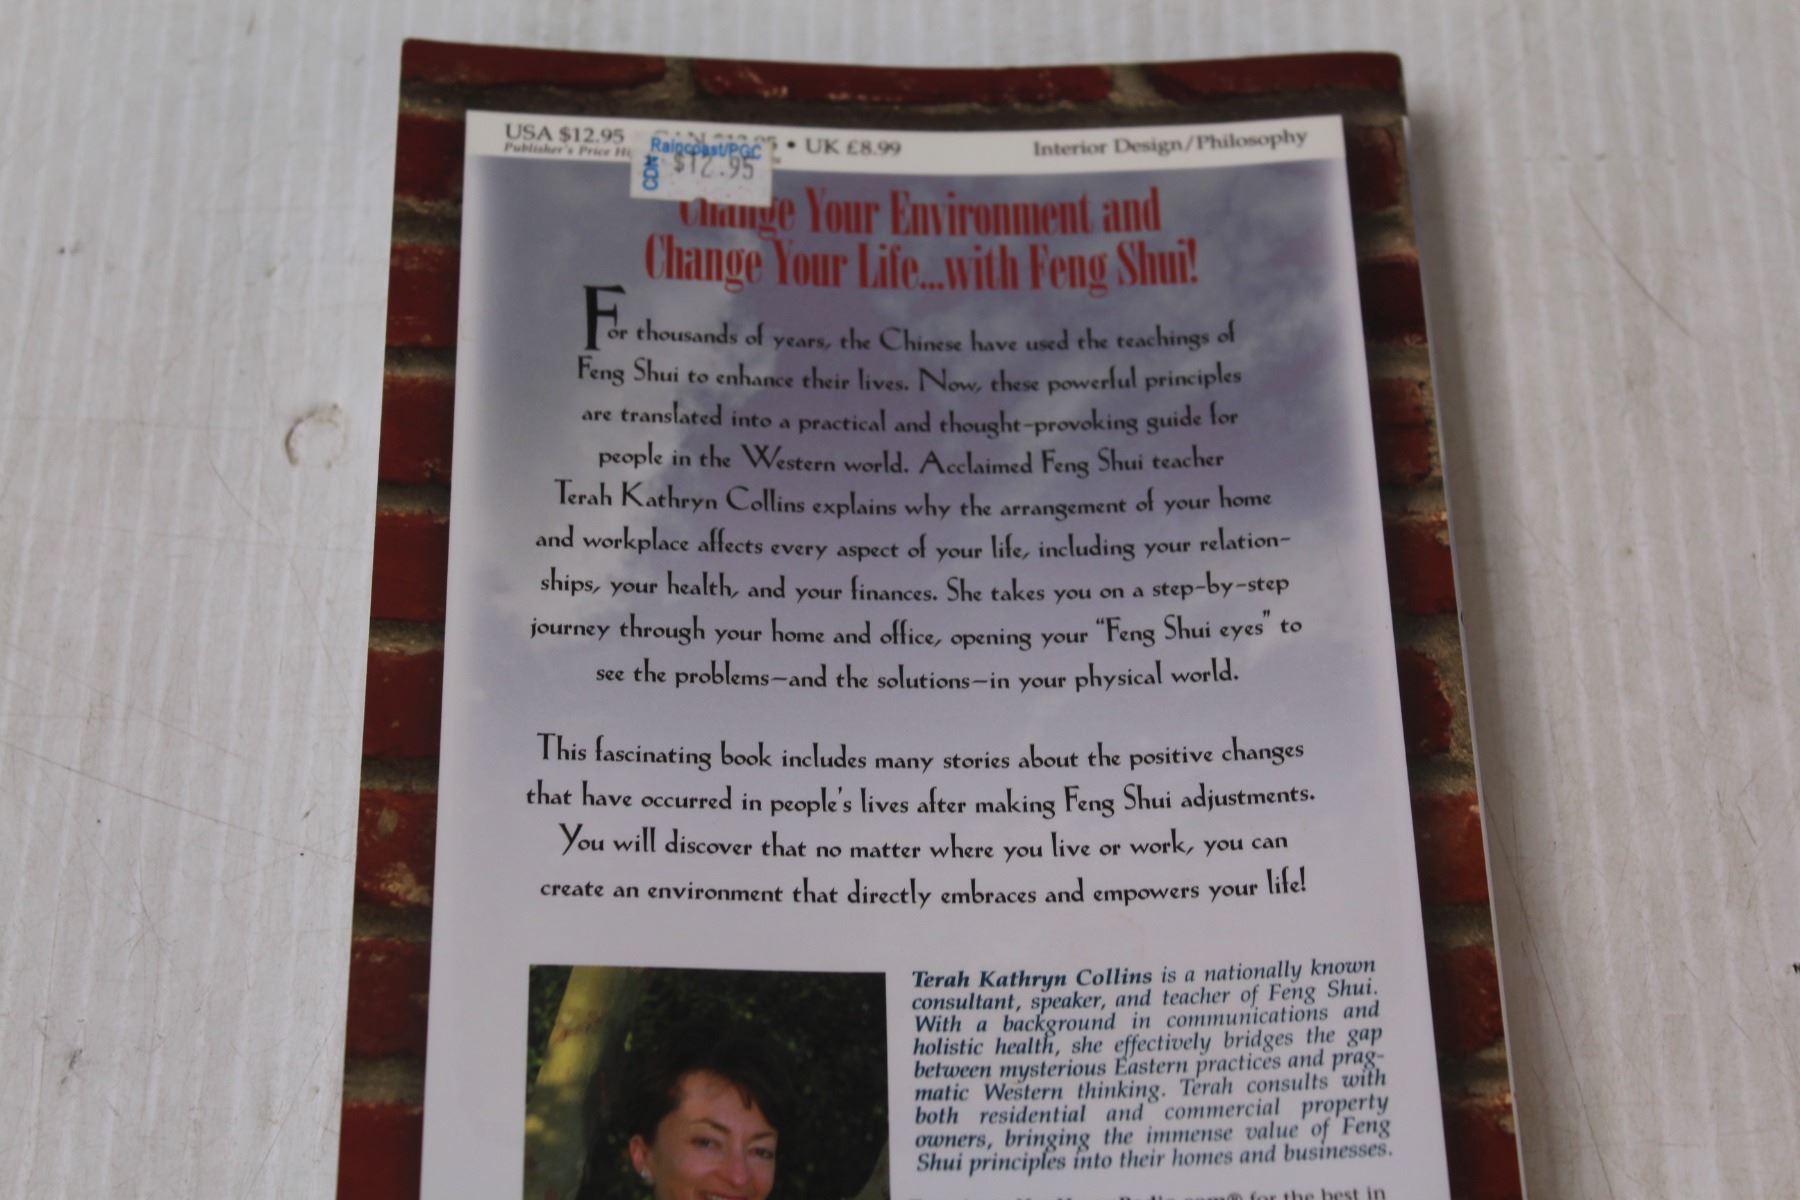 USA $12.95 • UK £8.99 Interior Design/Philosophy
Publisher's Price
Raincoast/PGC
CDN $12.95
Change Your Environment and
Change Your Life...with Feng Shui!
For thousands of years, the Chinese have used the teachings of
Feng Shui to enhance their lives. Now, these powerful principles
are translated into a practical and thought-provoking guide for
people in the Western world. Acclaimed Feng Shui teacher
Terah Kathryn Collins explains why the arrangement of your home
and workplace affects every aspect of your life, including your relation-
ships, your health, and your finances. She takes you on a step-by-step
journey through your home and office, opening your "Feng Shui eyes" to
see the problems—and the solutions—in your physical world.
This fascinating book includes many stories about the positive changes
that have occurred in people's lives after making Feng Shui adjustments.
You will discover that no matter where you live or work, you can
create an environment that directly embraces and empowers your life!
Terah Kathryn Collins is a nationally known
consultant, speaker, and teacher of Feng Shui.
With a background in communications and
holistic health, she effectively bridges the gap
between mysterious Eastern practices and prag-
matic Western thinking. Terah consults with
both residential and commercial property
owners, bringing the immense value of Feng
Shui principles into their homes and businesses.
for the best in